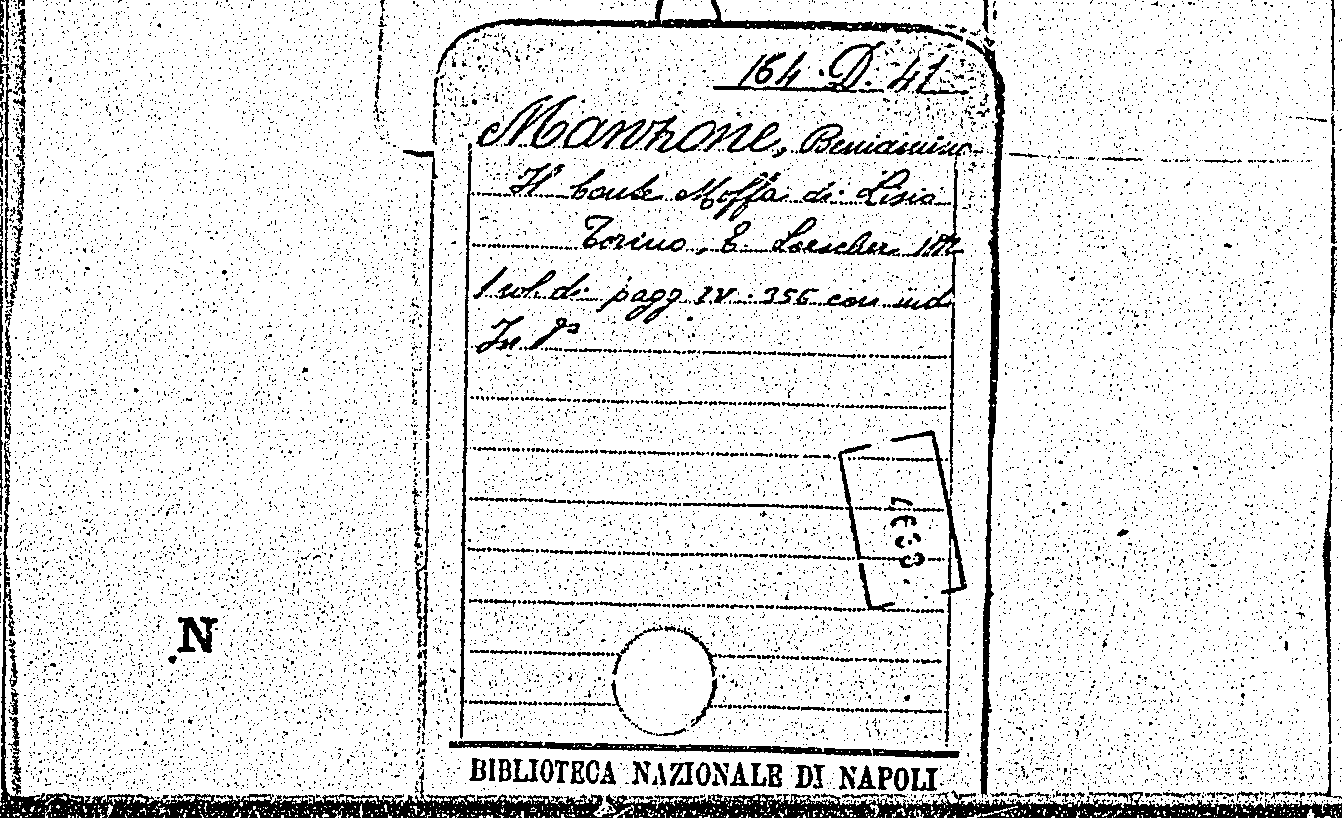 164. D. 41
Manzone, Beniamino
Il Conte Moffa di Lisio
Torino, E. Loescher
1 vol. di pagg IV. 356 con ind
In 8°
N
BIBLIOTECA NAZIONALE DI NAPOLI